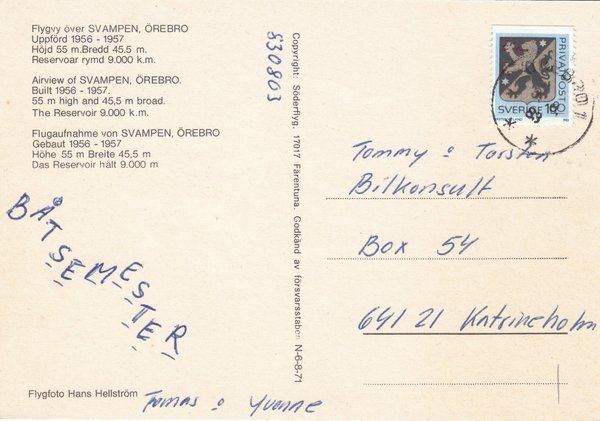 Flygvy över SVAMPEN, ÖREBRO
Uppförd 1956 - 1957
Höjd 55 m.Bredd 45.5 m.
Reservoar rymd 9.000 k.m.
Airview of SVAMPEN, ÖREBRO.
Built 1956 - 1957.
55 m high and 45,5 m broad.
The Reservoir 9.000 k.m.
Flugaufnahme von SVAMPEN, ÖREBRO
Gebaut 1956 - 1957
Höhe 55 m Breite 45,5 m
Das Reservoir hält 9.000 m
BÅTSEMESTER
Flygfoto Hans Hellström
Tomas o Yvonne
830803
Copyright: Söderflyg, 17017 Färentuna. Godkänd av försvarsstaben N-6-8-71
PRIVATPOST
SVERIGE
Tommy o Torsten
Bilkonsult
Box 54
641 21 Katrineholm